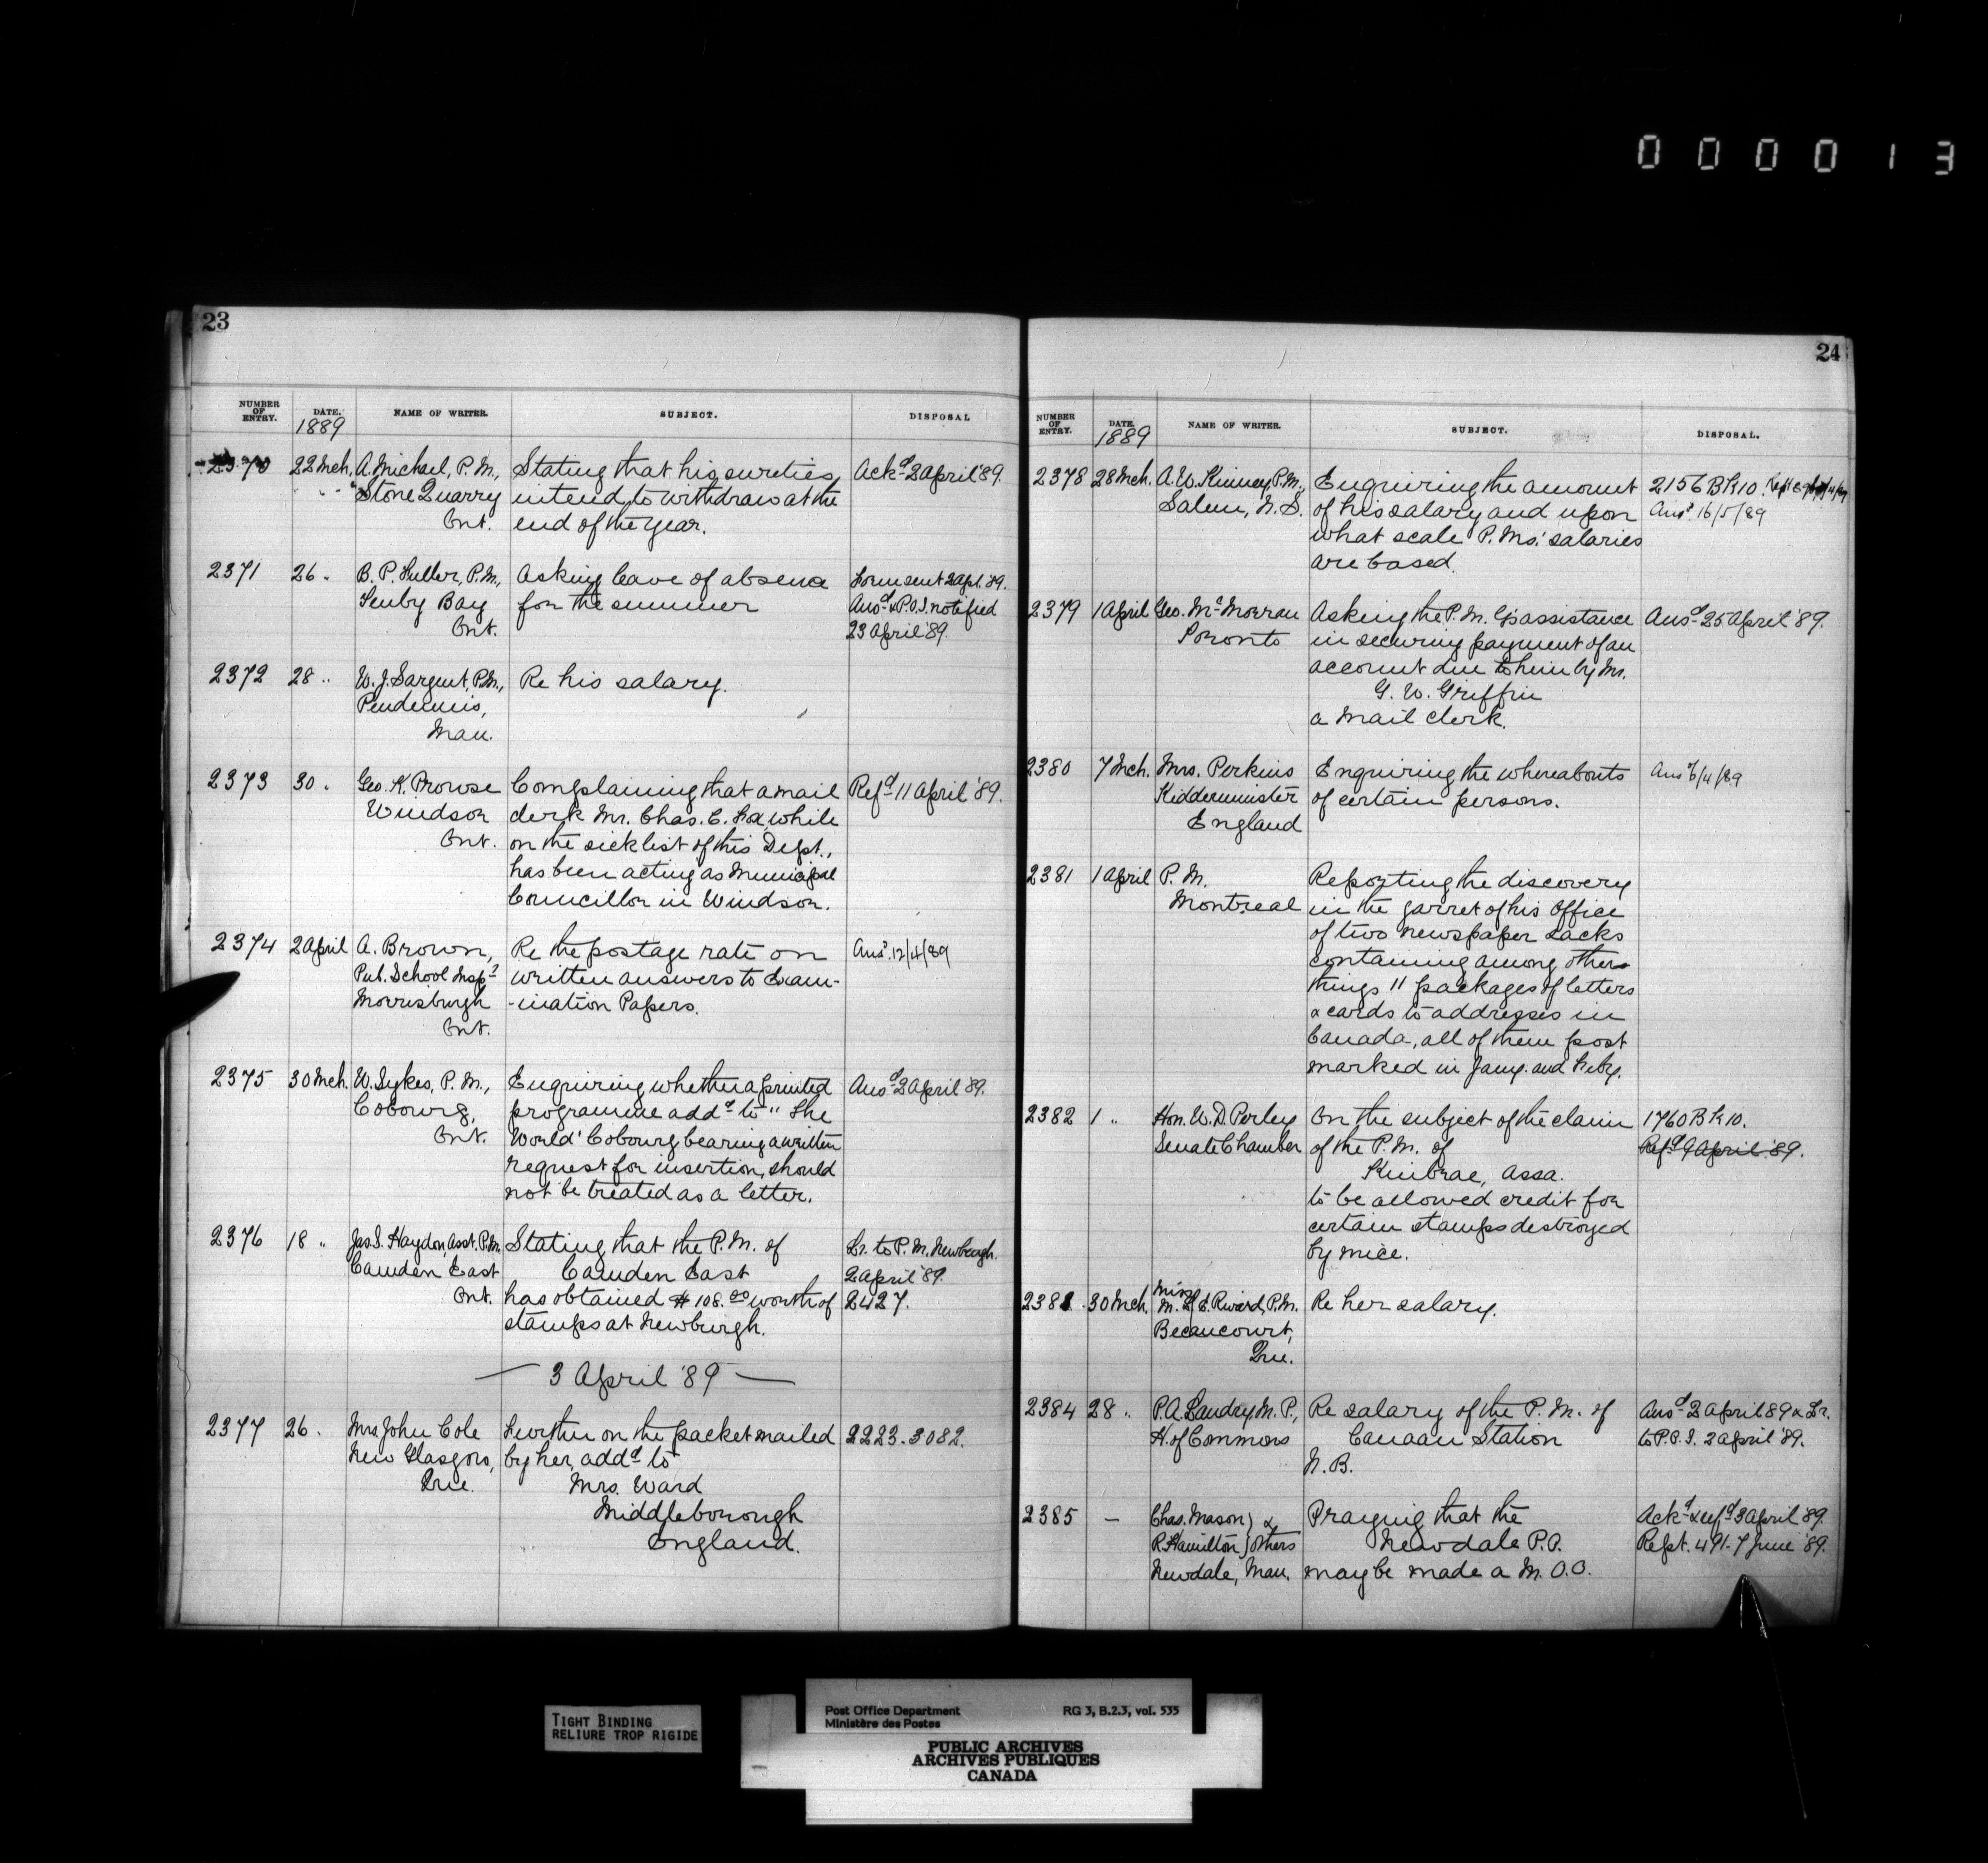 000013
23
NUMBER OF ENTRY. DATE. NAME OF WRITER. SUBJECT. DISPOSAL
1889
2370 22 Mch. A. Michael, P.M., Stating that his sureties Ackd 2 April '89.
Stone Quarry intend to withdraw at the
Ont. end of the year.
2371 26 " B. P. Fuller, P.M., Asking leave of absence Form sent 2 Apl. '89.
Fenby Bay for the summer Ansd & P.O.I. notified
Ont. 23 April '89.
2372 28 " W. J. Sargent, P.M., Re his salary.
Pendennis,
Man.
2373 30 " Geo. K. Prowse Complaining that a mail Refd 11 April '89.
Windsor clerk Mr. Chas. E. Fox, while
Ont. on the sick list of this Dept.,
has been acting as Municipal
Councillor in Windsor.
2374 2 April A. Brown, Re the postage rate on Ansd 12/4/89
Pub. School Inspr written answers to Exam-
Morrisburgh -ination Papers.
Ont.
2375 30 Mch. W. Sykes, P.M., Enquiring whether a printed Ansd 2 April '89.
Cobourg, programme addd to "The
Ont. World' Cobourg bearing a written
request for insertion, should
not be treated as a letter.
2376 18 " Jas. S. Haydon, Asst. P.M. Stating that the P.M. of Lr. to P.M. Newburgh.
Camden East Camden East 2 April '89.
Ont. has obtained $108.00 worth of 2427.
stamps at Newburgh.
— 3 April '89 —
2377 26 " Mrs. John Cole Further on the packet mailed 2223. 3082.
New Glasgow, by her, addd to
Que. Mrs. Ward
Middleborough
England.
24
NUMBER OF ENTRY. DATE. NAME OF WRITER. SUBJECT. DISPOSAL.
1889
2378 28 Mch. A. W. Kinney, P.M., Enquiring the amount 2156 Bk 10.
Salem, N.S. of his salary and upon Ansd 16/5/89
what scale P.Ms.' salaries
are based.
2379 1 April Geo. McMorran Asking the P.M. G's assistance Ansd 25 April '89.
Toronto in securing payment of an
account due to him by Mr.
G. W. Griffin
a Mail Clerk.
2380 7 Mch. Mrs. Perkins Enquiring the whereabouts Ansd 6/4/89
Kidderminster of certain persons.
England
2381 1 April P.M. Reporting the discovery
Montreal in the garret of his Office
of two newspaper sacks
containing among other
things 11 packages of letters
& cards to addresses in
Canada, all of them post
marked in Jany. and Feby.
2382 1 " Hon. W. D. Perley On the subject of the claim 1760 Bk 10.
Senate Chamber of the P.M. of Refd 9 April '89.
Kinbrae, Assa.
to be allowed credit for
certain stamps destroyed
by mice.
2383 30 Mch. Miss M. L. E. Rivard, P.M. Re her salary.
Becancourt,
Que.
2384 28 " P. A. Landry, M.P., Re salary of the P.M. of Ansd 2 April 89 & Lr.
H. of Commons Canaan Station to P.O.I. 2 April '89.
N.B.
2385 — Chas. Mason } & Praying that the Ackd & refd 3 April '89.
R. Hamilton } others Newdale P.O. Rept. 491-7 June '89.
Newdale, Man. may be made a M.O.O.
TIGHT BINDING
RELIURE TROP RIGIDE
Post Office Department RG 3, B.2.3, vol. 535
Ministère des Postes
PUBLIC ARCHIVES
ARCHIVES PUBLIQUES
CANADA